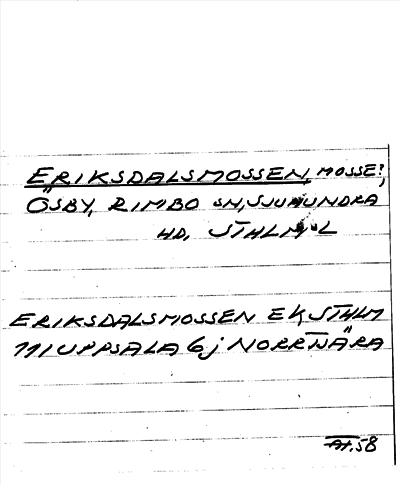 ERIKSDALSMOSSEN, MOSSE!,
ÖSBY, RIMBO SN, SJUHUNDRA
HD, STHLMS L
ERIKSDALSMOSSEN EK, STHLM
111 UPPSALA 6j NORRNÄRA
AH.58